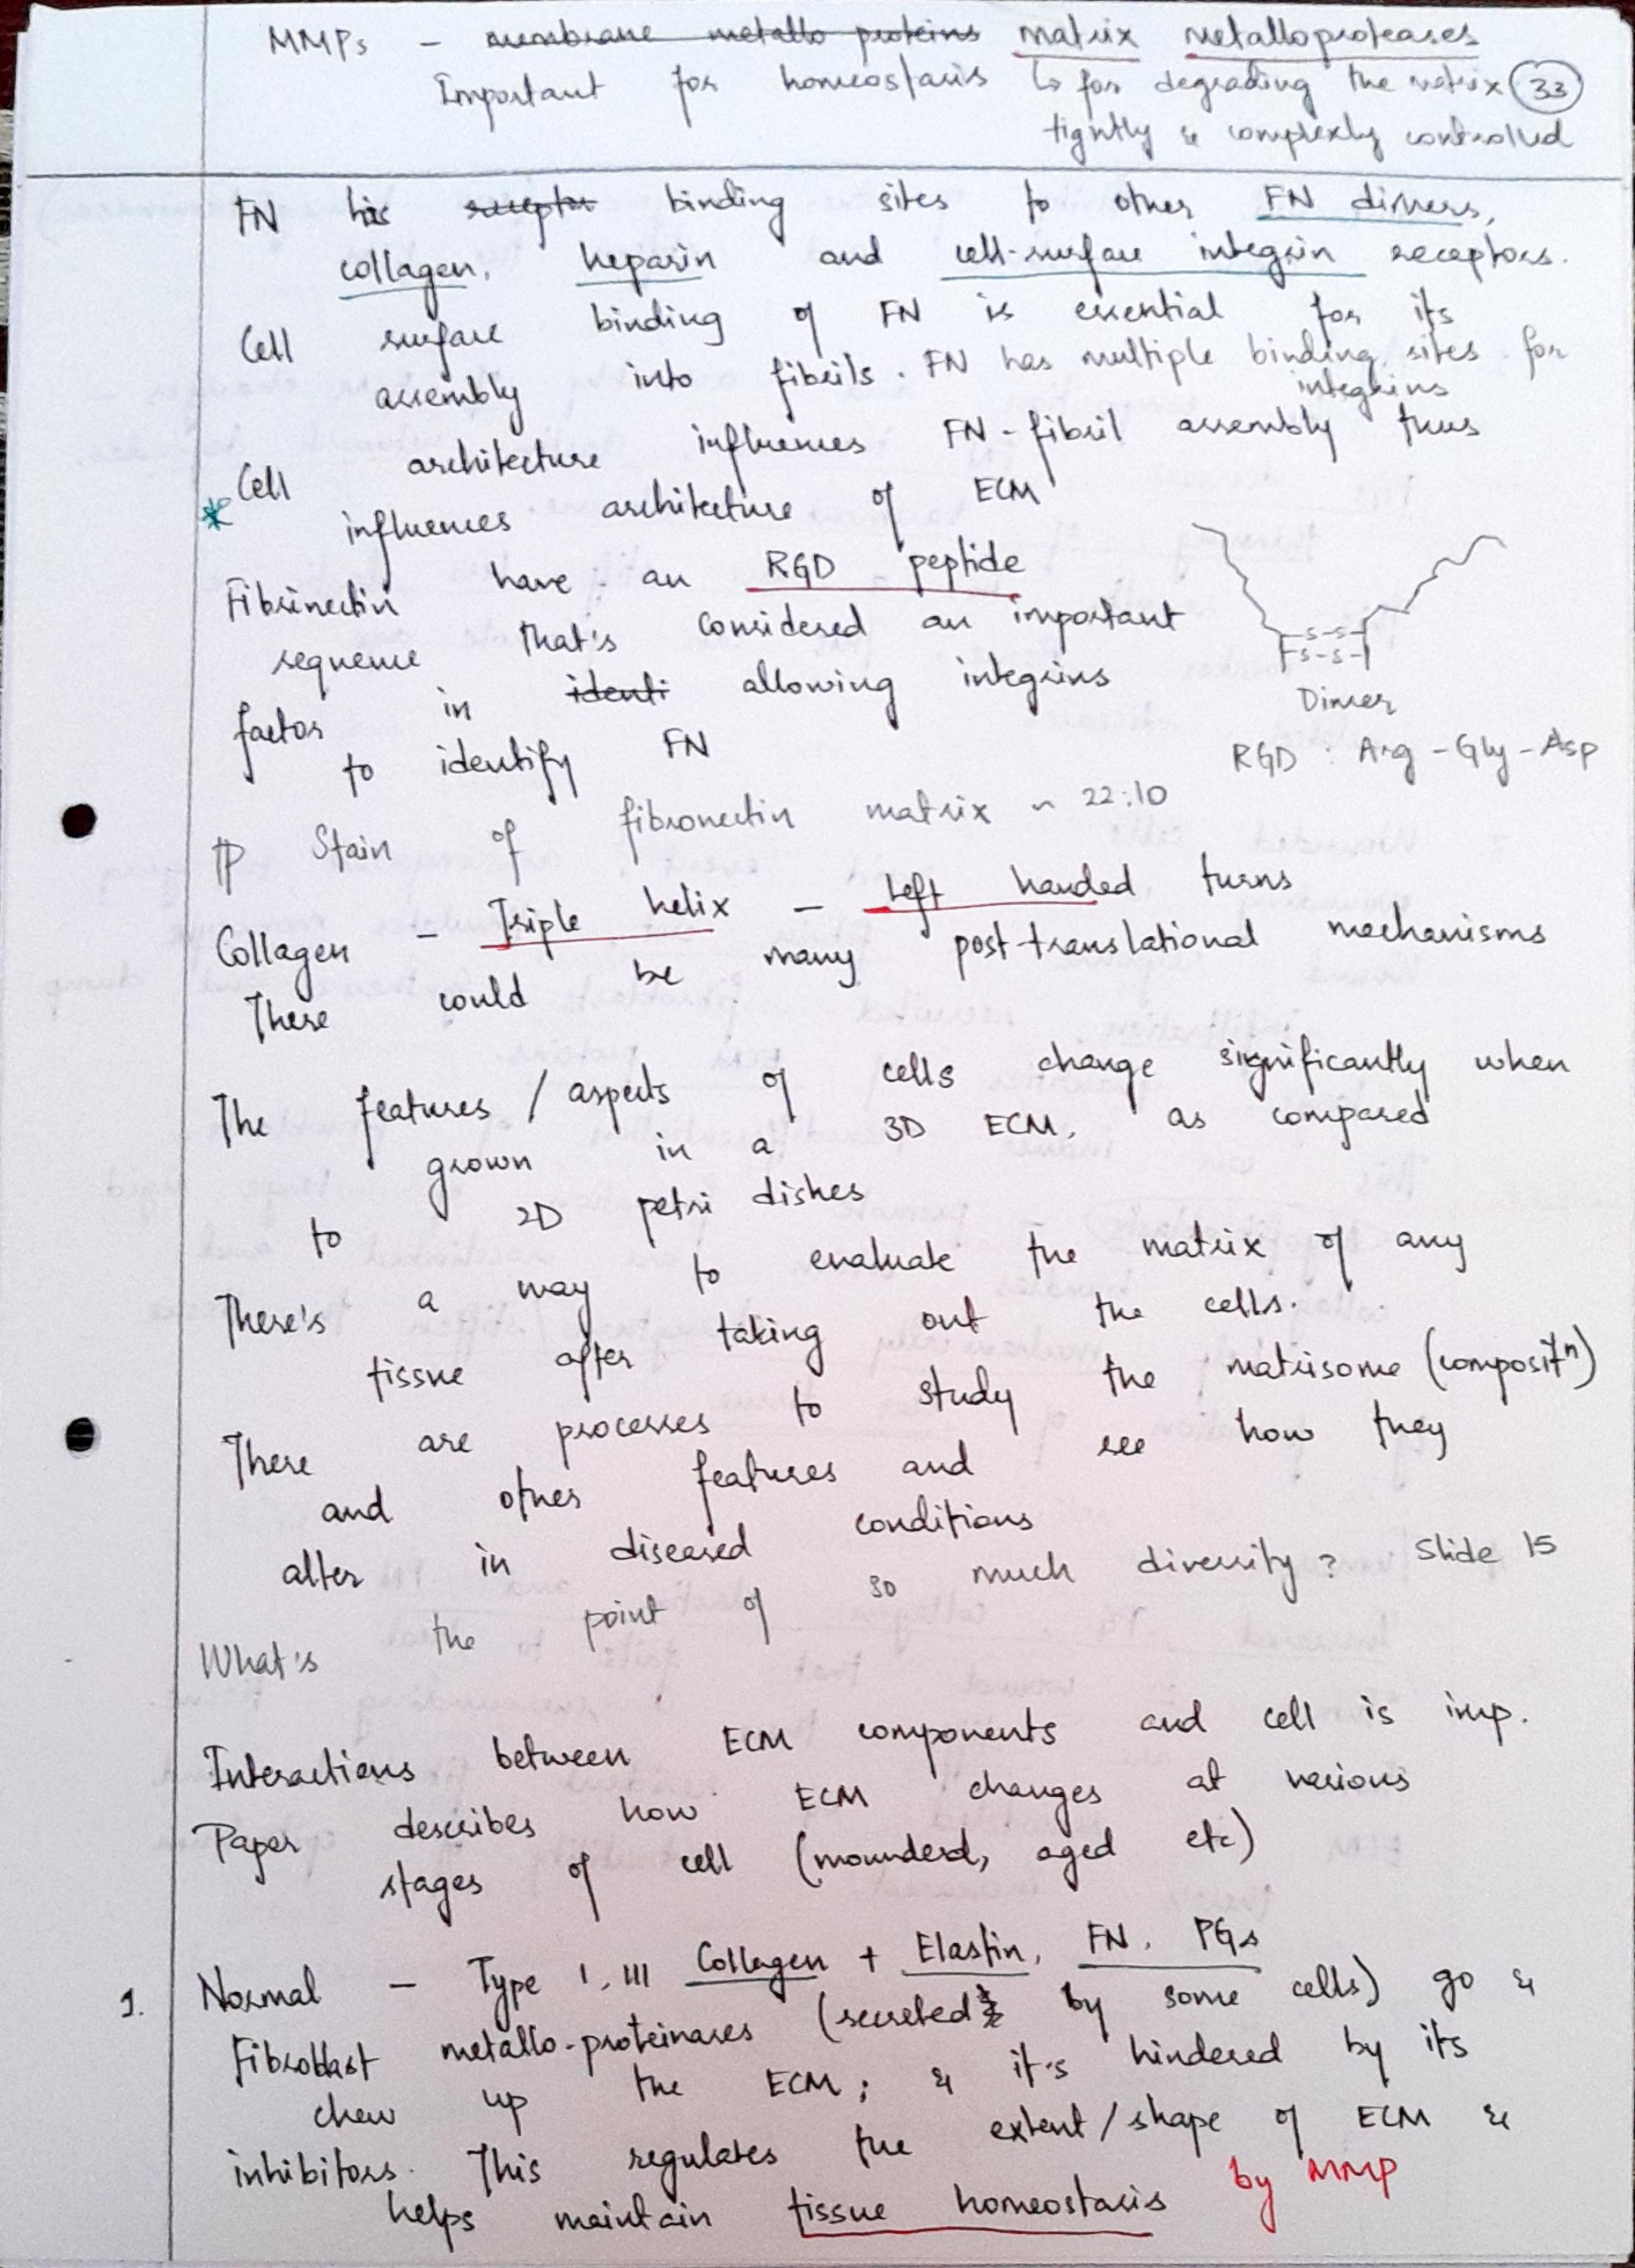 MMPs - membrane metallo proteins matrix metalloproteases
Important for homeostasis ↳ for degrading the matrix 33
tightly & complexly controlled
FN his receptor binding sites to other FN dimers,
collagen, heparin and cell-surface integrin receptors.
Cell surface binding of FN is essential for its
assembly into fibrils. FN has multiple binding sites for
integrins
* Cell architecture influences FN-fibril assembly thus
influences architecture of ECM
Fibrinectin have an RGD peptide
sequence that's considered an important
factor in identi allowing integrins
to identify FN
S-S
S-S
Dimer
RGD : Arg - Gly - Asp
Stain of fibronectin matrix ~ 22:10
Collagen - Triple helix - Left handed turns
There could be many post-translational mechanisms
The features / aspects of cells change significantly when
grown in a 3D ECM, as compared
to 2D petri dishes
There's a way to evaluate the matrix of any
tissue after taking out the cells.
There are processes to study the matrisome (compositⁿ)
and other features and see how they
alter in diseased conditions
What's the point of so much diversity? Slide 15
Interactions between ECM components and cell is imp.
Paper describes how ECM changes at various
stages of cell (wounderd, aged etc)
1. Normal - Type I, III Collagen + Elastin, FN, PGs
Fibroblast metallo-proteinases (secreted by some cells) go &
chew up the ECM; & it's hindered by its
inhibitors. This regulates the extent/shape of ECM &
helps maintain tissue homeostasis by MMP